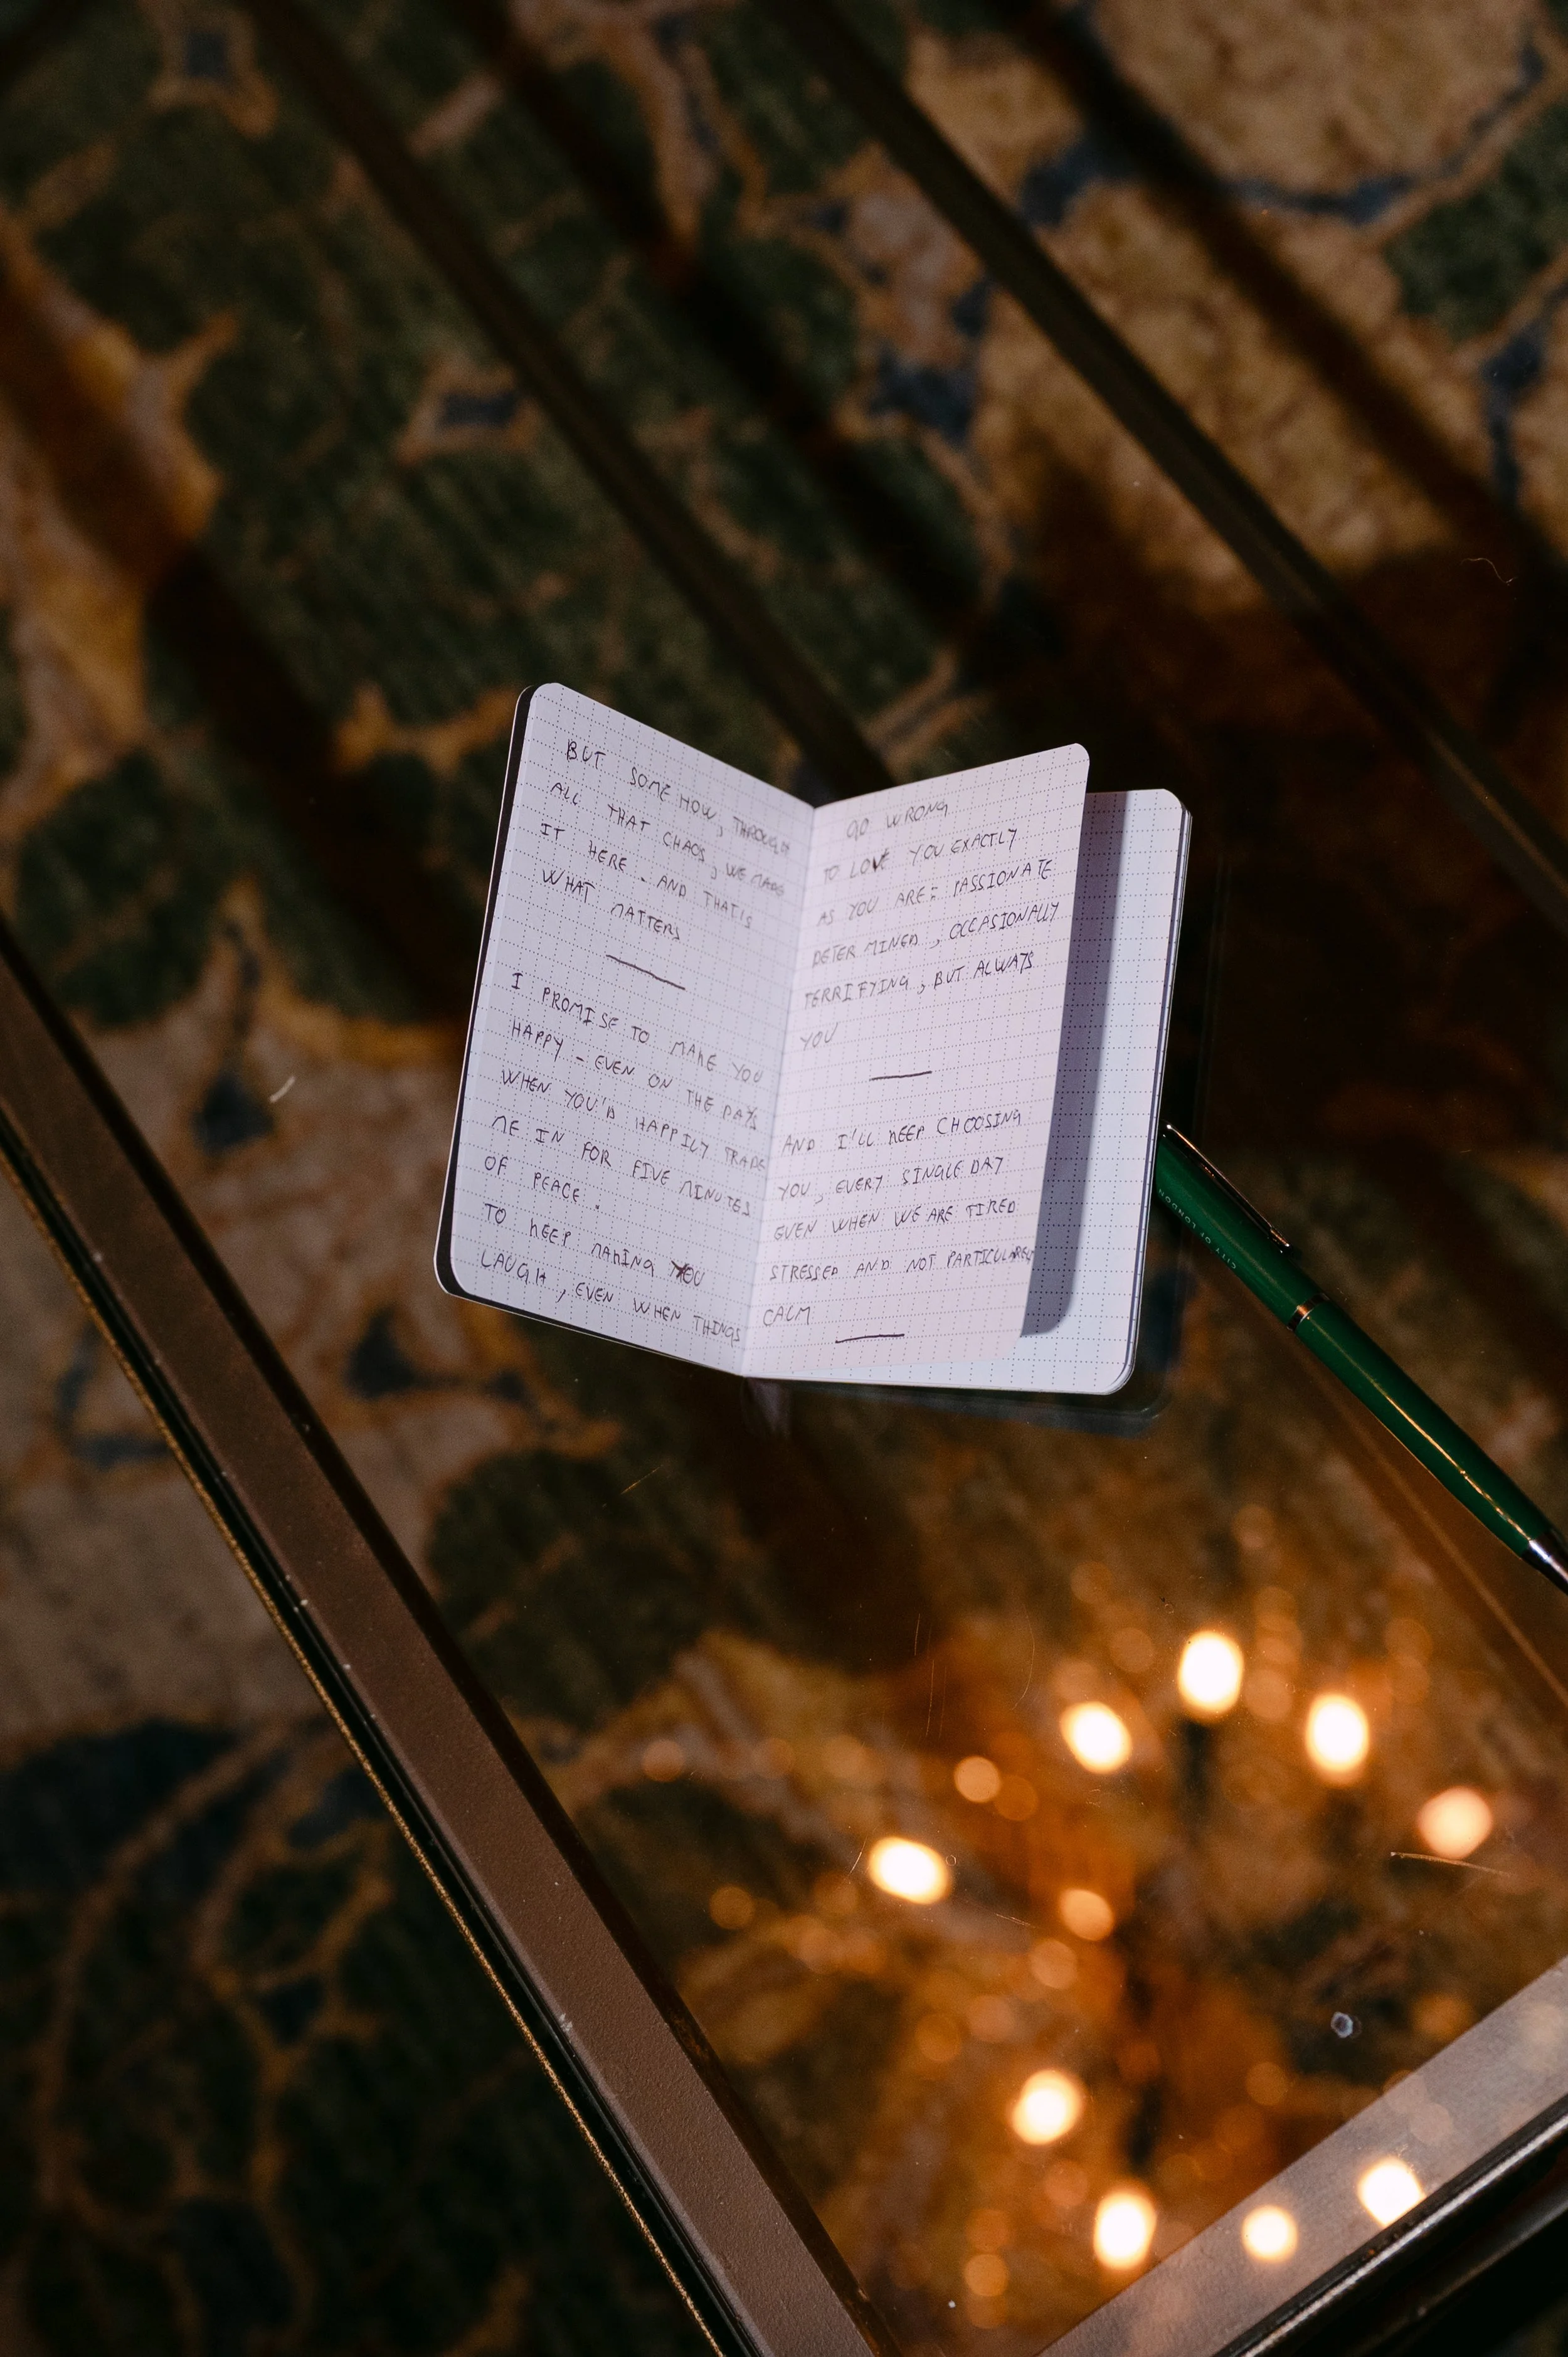 BUT SOME HOW, THROUGH
ALL THAT CHAOS, WE MADE
IT HERE. AND THAT'S
WHAT MATTERS
I PROMISE TO MAKE YOU
HAPPY - EVEN ON THE DAYS
WHEN YOU'D HAPPILY TRADE
ME IN FOR FIVE MINUTES
OF PEACE.
TO KEEP MAKING YOU
LAUGH, EVEN WHEN THINGS
GO WRONG
TO LOVE YOU EXACTLY
AS YOU ARE: PASSIONATE
DETERMINED, OCCASIONALLY
TERRIFYING, BUT ALWAYS
YOU
AND I'LL KEEP CHOOSING
YOU, EVERY SINGLE DAY
EVEN WHEN WE ARE TIRED
STRESSED AND NOT PARTICULARELY
CALM
CITY OF LONDON